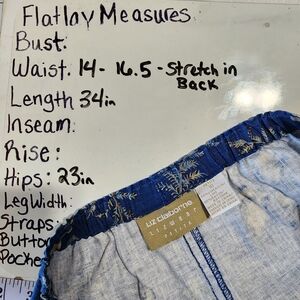 Flatlay Measures
Bust:
Waist. 14 - 16.5 - Stretch in
Back
Length 34in
Inseam:
Rise:
Hips: 23in
Leg Width:
Straps
Button
Pocke
liz claiborne
LIZWEAR
PETITE